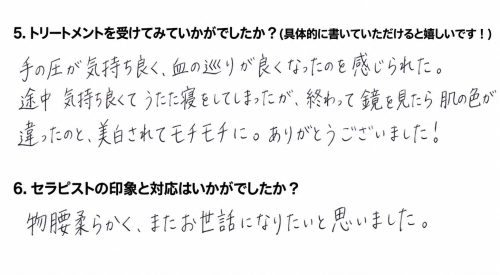 5. トリートメントを受けてみていかがでしたか？(具体的に書いていただけると嬉しいです！)
手の圧が気持ち良く、血の巡りが良くなったのを感じられた。
途中 気持ち良くてうたた寝をしてしまったが、終わって鏡を見たら肌の色が
違ったのと、美白されてモチモチに。ありがとうございました！
6. セラピストの印象と対応はいかがでしたか？
物腰柔らかく、またお世話になりたいと思いました。